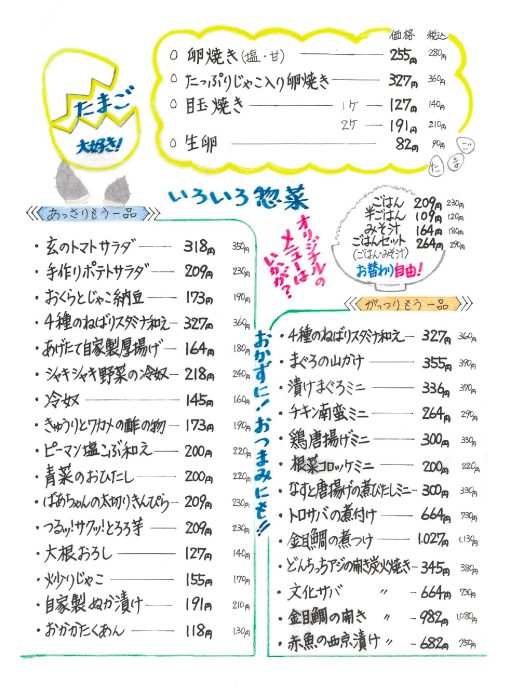 たまご
大好き!
価格 税込
卵焼き(塩・甘) 255円 280円
たっぷりじゃこ入り卵焼き 327円 360円
目玉焼き 1ケ 127円 140円
2ケ 191円 210円
生卵 82円 90円
たまご
いろいろ惣菜
オリジナルの
メニューは
いかが?
ごはん 209円 230円
半ごはん 109円 120円
みそ汁 164円 180円
ごはんセット 264円 290円
(ごはん・みそ汁)
お替わり自由!
あっさりもう一品
・玄のトマトサラダ 318円 350円
・手作りポテトサラダ 209円 230円
・おくらとじゃこ納豆 173円 190円
・4種のねばりスタミナ和え 327円 360円
・あげたて自家製厚揚げ 164円 180円
・シャキシャキ野菜の冷奴 218円 240円
・冷奴 145円 160円
・きゅうりとワカメの酢の物 173円 190円
・ピーマン塩こぶ和え 200円 220円
・青菜のおひたし 200円 220円
・ばあちゃんの太切りきんぴら 209円 230円
・つるッ!サクッ!とろろ芋 209円 230円
・大根おろし 127円 140円
・炒りじゃこ 155円 170円
・自家製ぬか漬け 191円 210円
・おかかたくあん 118円 130円
おかずに!おつまみにも!!
がっつりもう一品
・4種のねばりスタミナ和え 327円 360円
・まぐろの山かけ 355円 390円
・漬けまぐろミニ 336円 370円
・チキン南蛮ミニ 264円 290円
・鶏唐揚げミニ 300円 330円
・根菜コロッケミニ 200円 220円
・なすと唐揚げの煮びたしミニ 300円 330円
・トロサバの煮付け 664円 730円
・金目鯛の煮つけ 1,027円 1,130円
・どんちっちアジの開き炭火焼き 345円 380円
・文化サバ 〃 664円 730円
・金目鯛の開き 〃 982円 1,080円
・赤魚の西京漬け 〃 682円 750円